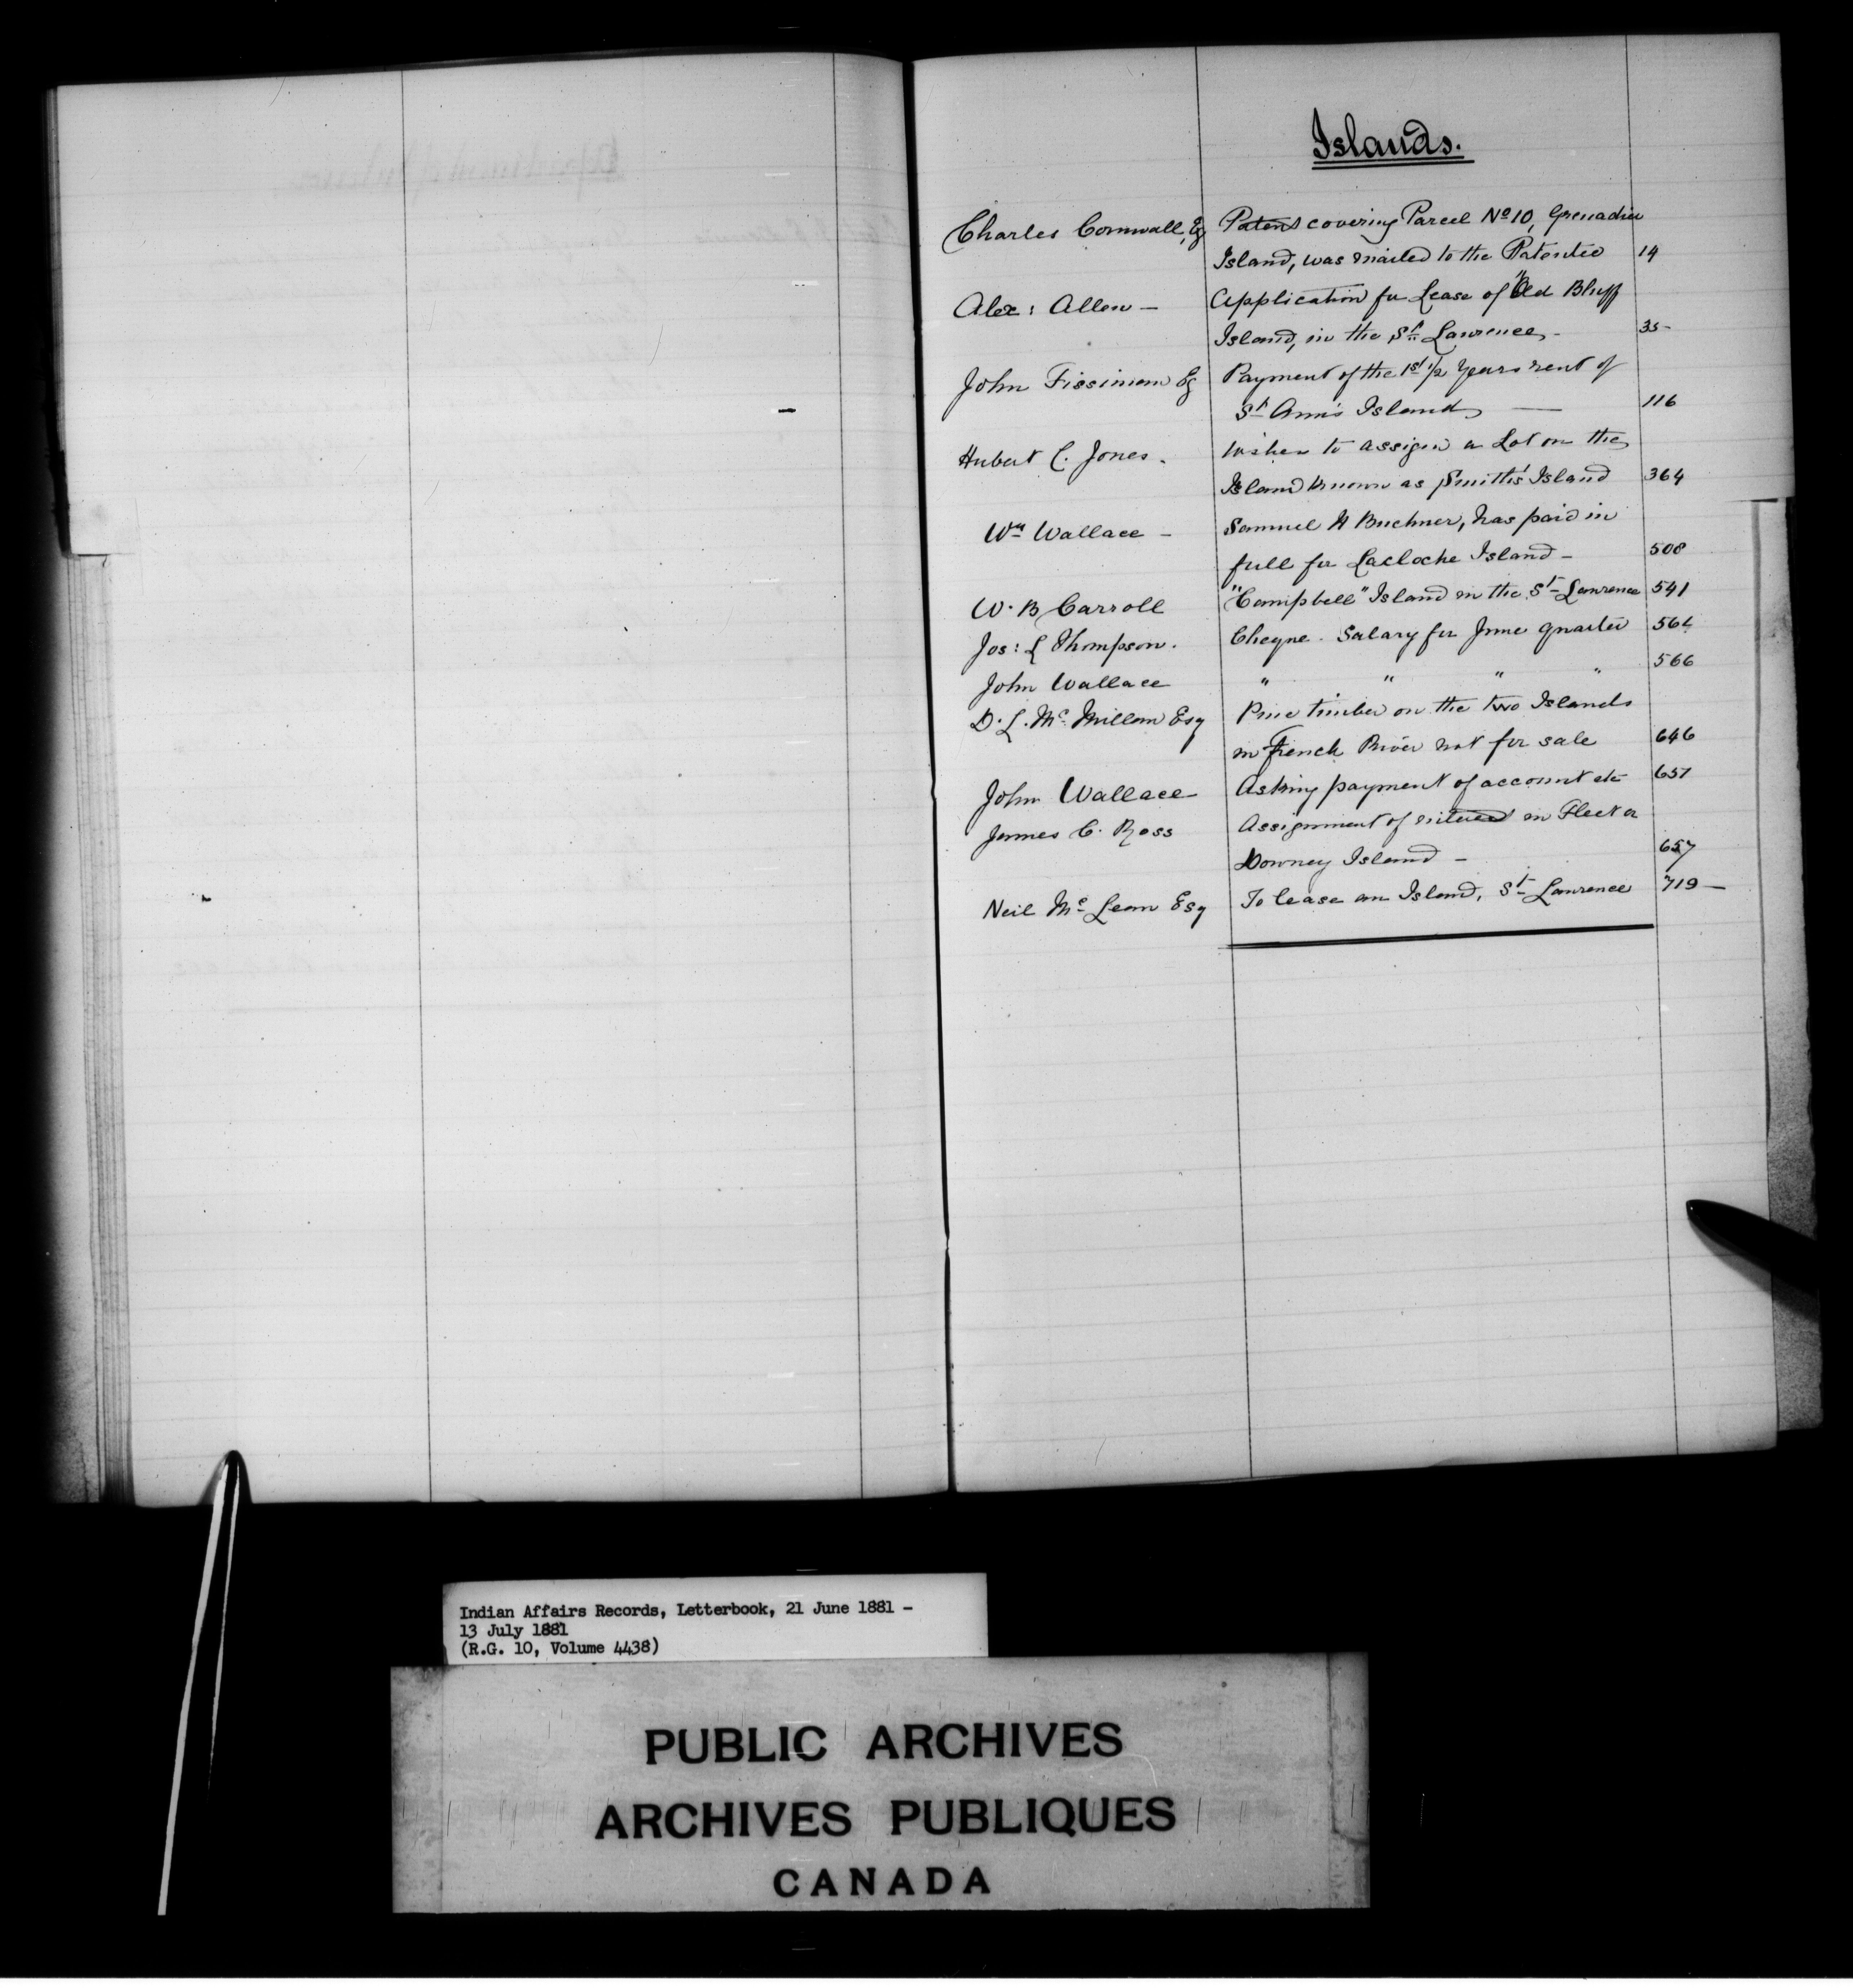 Islands.
Charles Cornwall, Esq Patent covering Parcel No 10, Grenadier
Island, was mailed to the Patentee 14
Alex: Allen — Application for Lease of "Old Bluff
Island, in the St. Lawrence, - 35-
John Fissimon Esq Payment of the 1st 1/2 Years rent of
St Ann's Island, — 116
Hubert C. Jones. Wishes to assign a Lot on the
Island known as Smith's Island 364
Wm Wallace - Samuel H Buchner, has paid in
full for Lacloche Island - 508
W. B Carroll "Campbell" Island in the St Lawrence 541
Jos: L Thompson. Cheque. Salary for June quarter 564
John Wallace " " " " 566
D. L. Mc Millan Esq Pine timber on the two Islands
in French River not for sale 646
John Wallace Asking payment of account etc 651
James C. Ross Assignment of in Fleet a
Downey Island - 657
Neil Mc Lean Esq To lease an Island, St Lawrence 719 —
Indian Affairs Records, Letterbook, 21 June 1881 -
13 July 1881
(R.G. 10, Volume 4438)
PUBLIC ARCHIVES
ARCHIVES PUBLIQUES
CANADA